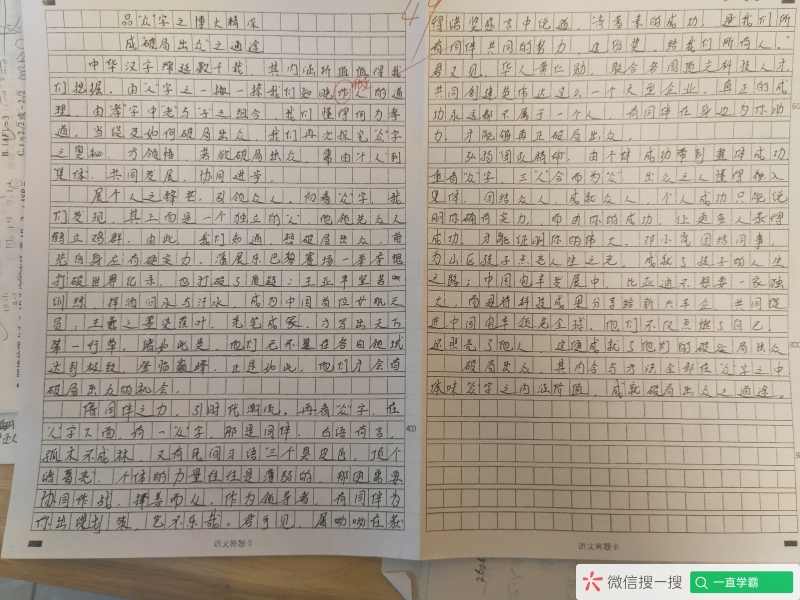 品"众"字之博大精深
成破局出众之通途
中华汉字绵延数千载，其内涵所值值得我
们挖掘。由"人"字之一撇一捺我们知晓作人的道
理，由"孝"字中"老"与"子"之组合，我们懂得何为孝
道，当促及如何破局出众，我们再次探究"众"字
之奥秘，方领悟，若欲破局出众，需由个人到
集体，共同发展，协同进步。
展个人之锋芒，引领众人。初看"众"字，我
们发现，其上面是一个独立的"人"，他领先众人
鹤立鸡群。由此，我们知道，想破局出众，首
先自身应有硬实力。潘展乐巴黎赛场一举夺魁
打破世界纪录，也打破了质疑；王亚平坚苦
训练，挥洒泪水与汗水，成为中国首位女航天
员；王羲之墨染蕉叶，秃笔成冢，方写出天下
第一行草，诸如此类，他们无不是在各自领域
达到极致，登临巅峰，正是如此，他们才会有
破局出众的机会。
借同伴之力，引时代潮流。再看"众"字，在
"人"字下面，有一"从"字，那是同伴。古语有言，
孤木不成林，又有民间习语"三个臭皮匠，顶个
诸葛亮"，个体的力量往往是薄弱的，那便需要
协同作战，择善而从，作为领导者，有同伴为
你出谋划策，岂不乐哉。君可见，屠呦呦在获
得诺奖感言中说道，"青蒿素的成功，是我们所
有同伴共同的努力，这份奖，给我们所有人。"
君又见，华人黄仁勋，联合各国顶尖科技人才
共同创建英伟达这么一个大型企业，真正的成
功永远都不属于一个人，有同伴在身边为你助
力，才能够真正破局出众。
弘扬团队精神，由个体成功带到整体成功。
重看"众"字，三"人"合而为"众"，出众之人懂得融入
集体，团结众人，成就众人，个人成功只能说
明你确有实力，而由你的成功，让更多人获得
成功，才能证明你的伟大。邓小岚团结同事，
为山区孩子点亮人生之光，成就了孩子的人生
之路；中国电车发展中，比亚迪不想要一家独
大，而是将科技成果分享给新兴车企，共同促
进中国电车领先全球，他们不仅点燃了自己，
还照亮了他人，这便成就了他们的破局出众
破局出众，其内含与方法全部在"众"字之中
咏味"众"字之内涵所值，成就破局出众之通途。
400
800
语文答题卡
语文答题卡
微信搜一搜
一直学霸